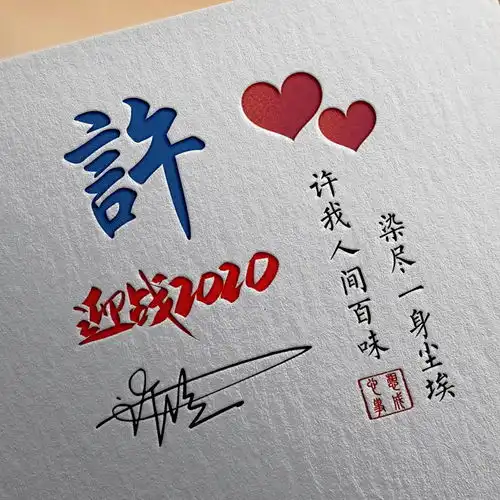 許
迎战2020
染尽一身尘埃
许我人间百味
心想
事成